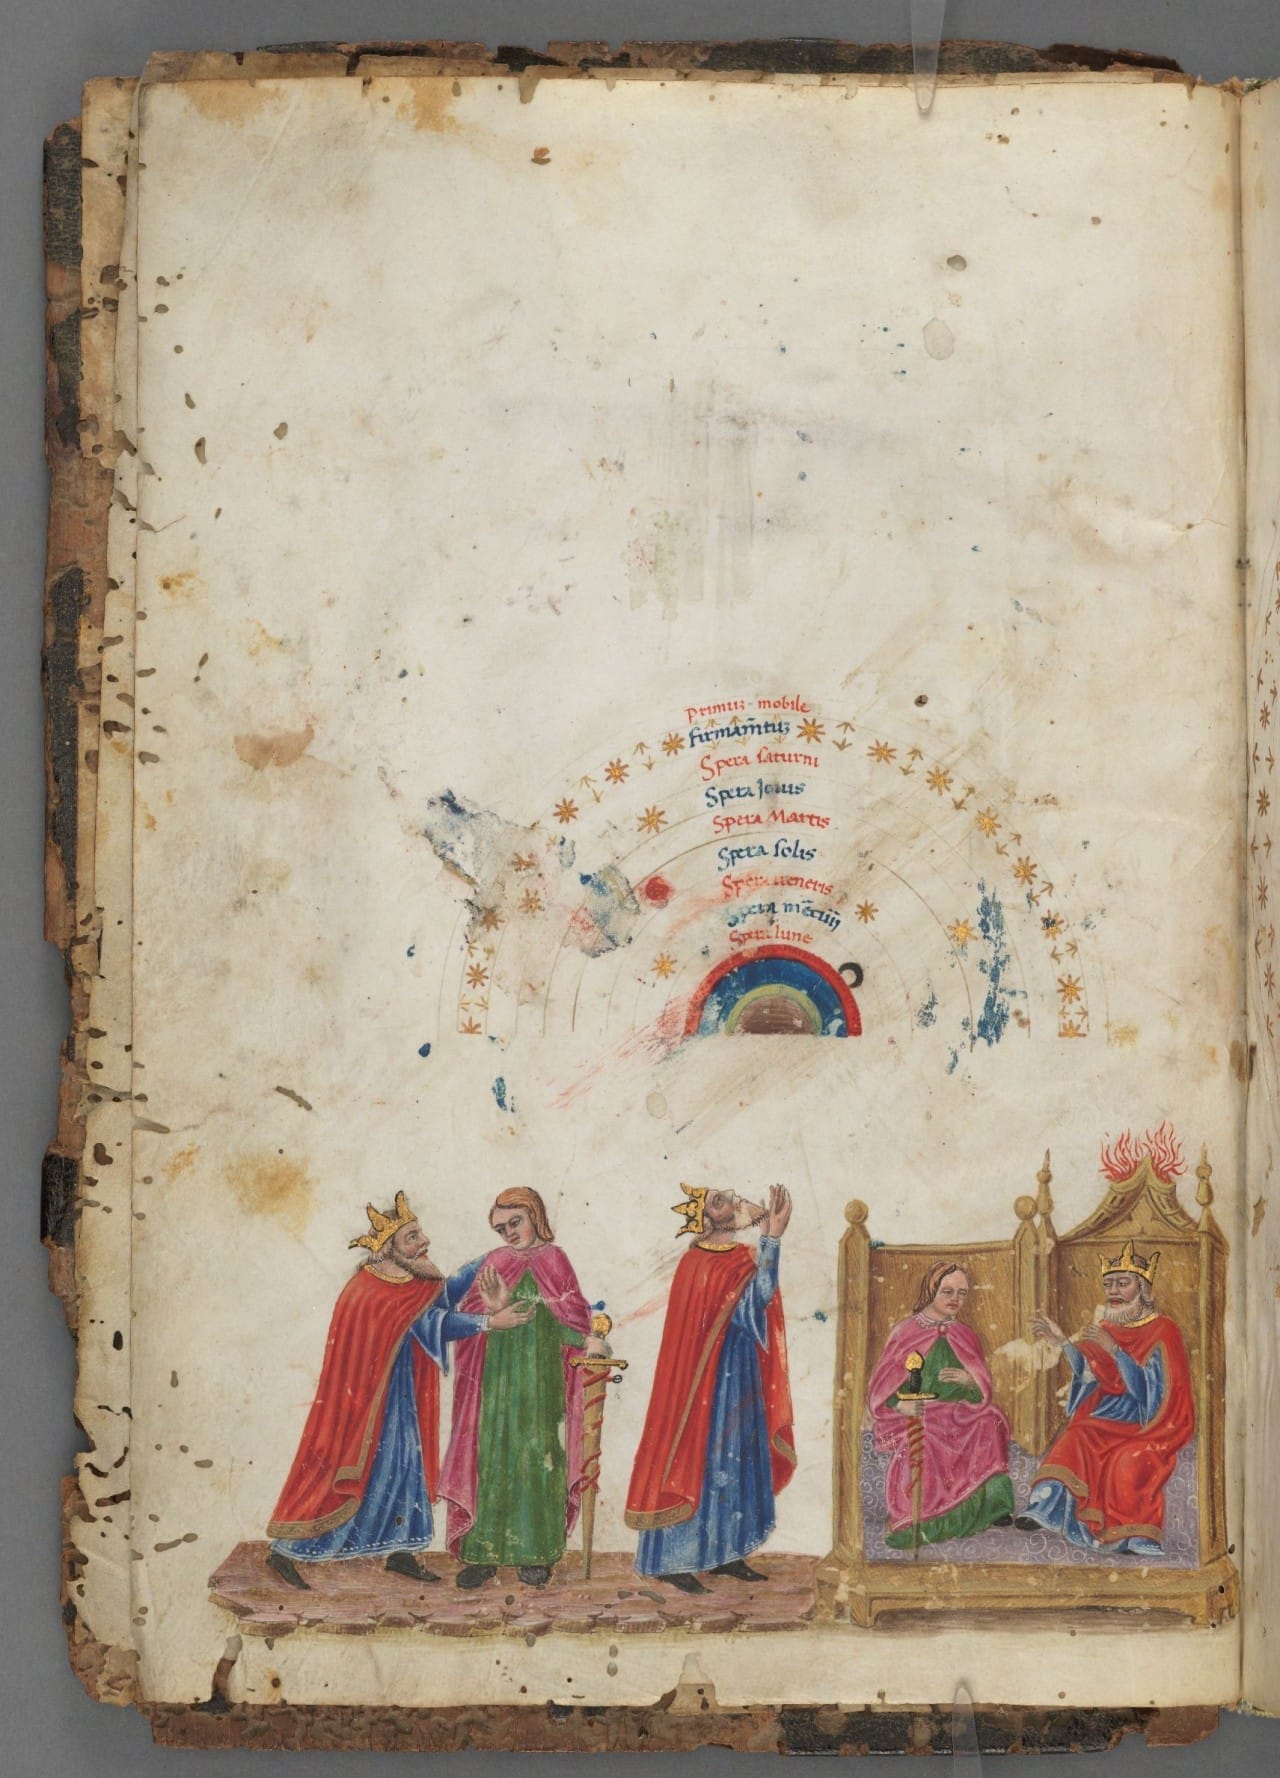 primuz mobile
firmam̃tuz
Spera saturni
Spera Jouis
Spera Martis
Spera solis
Spera ueneris
Spera m̃curij
Spera lune